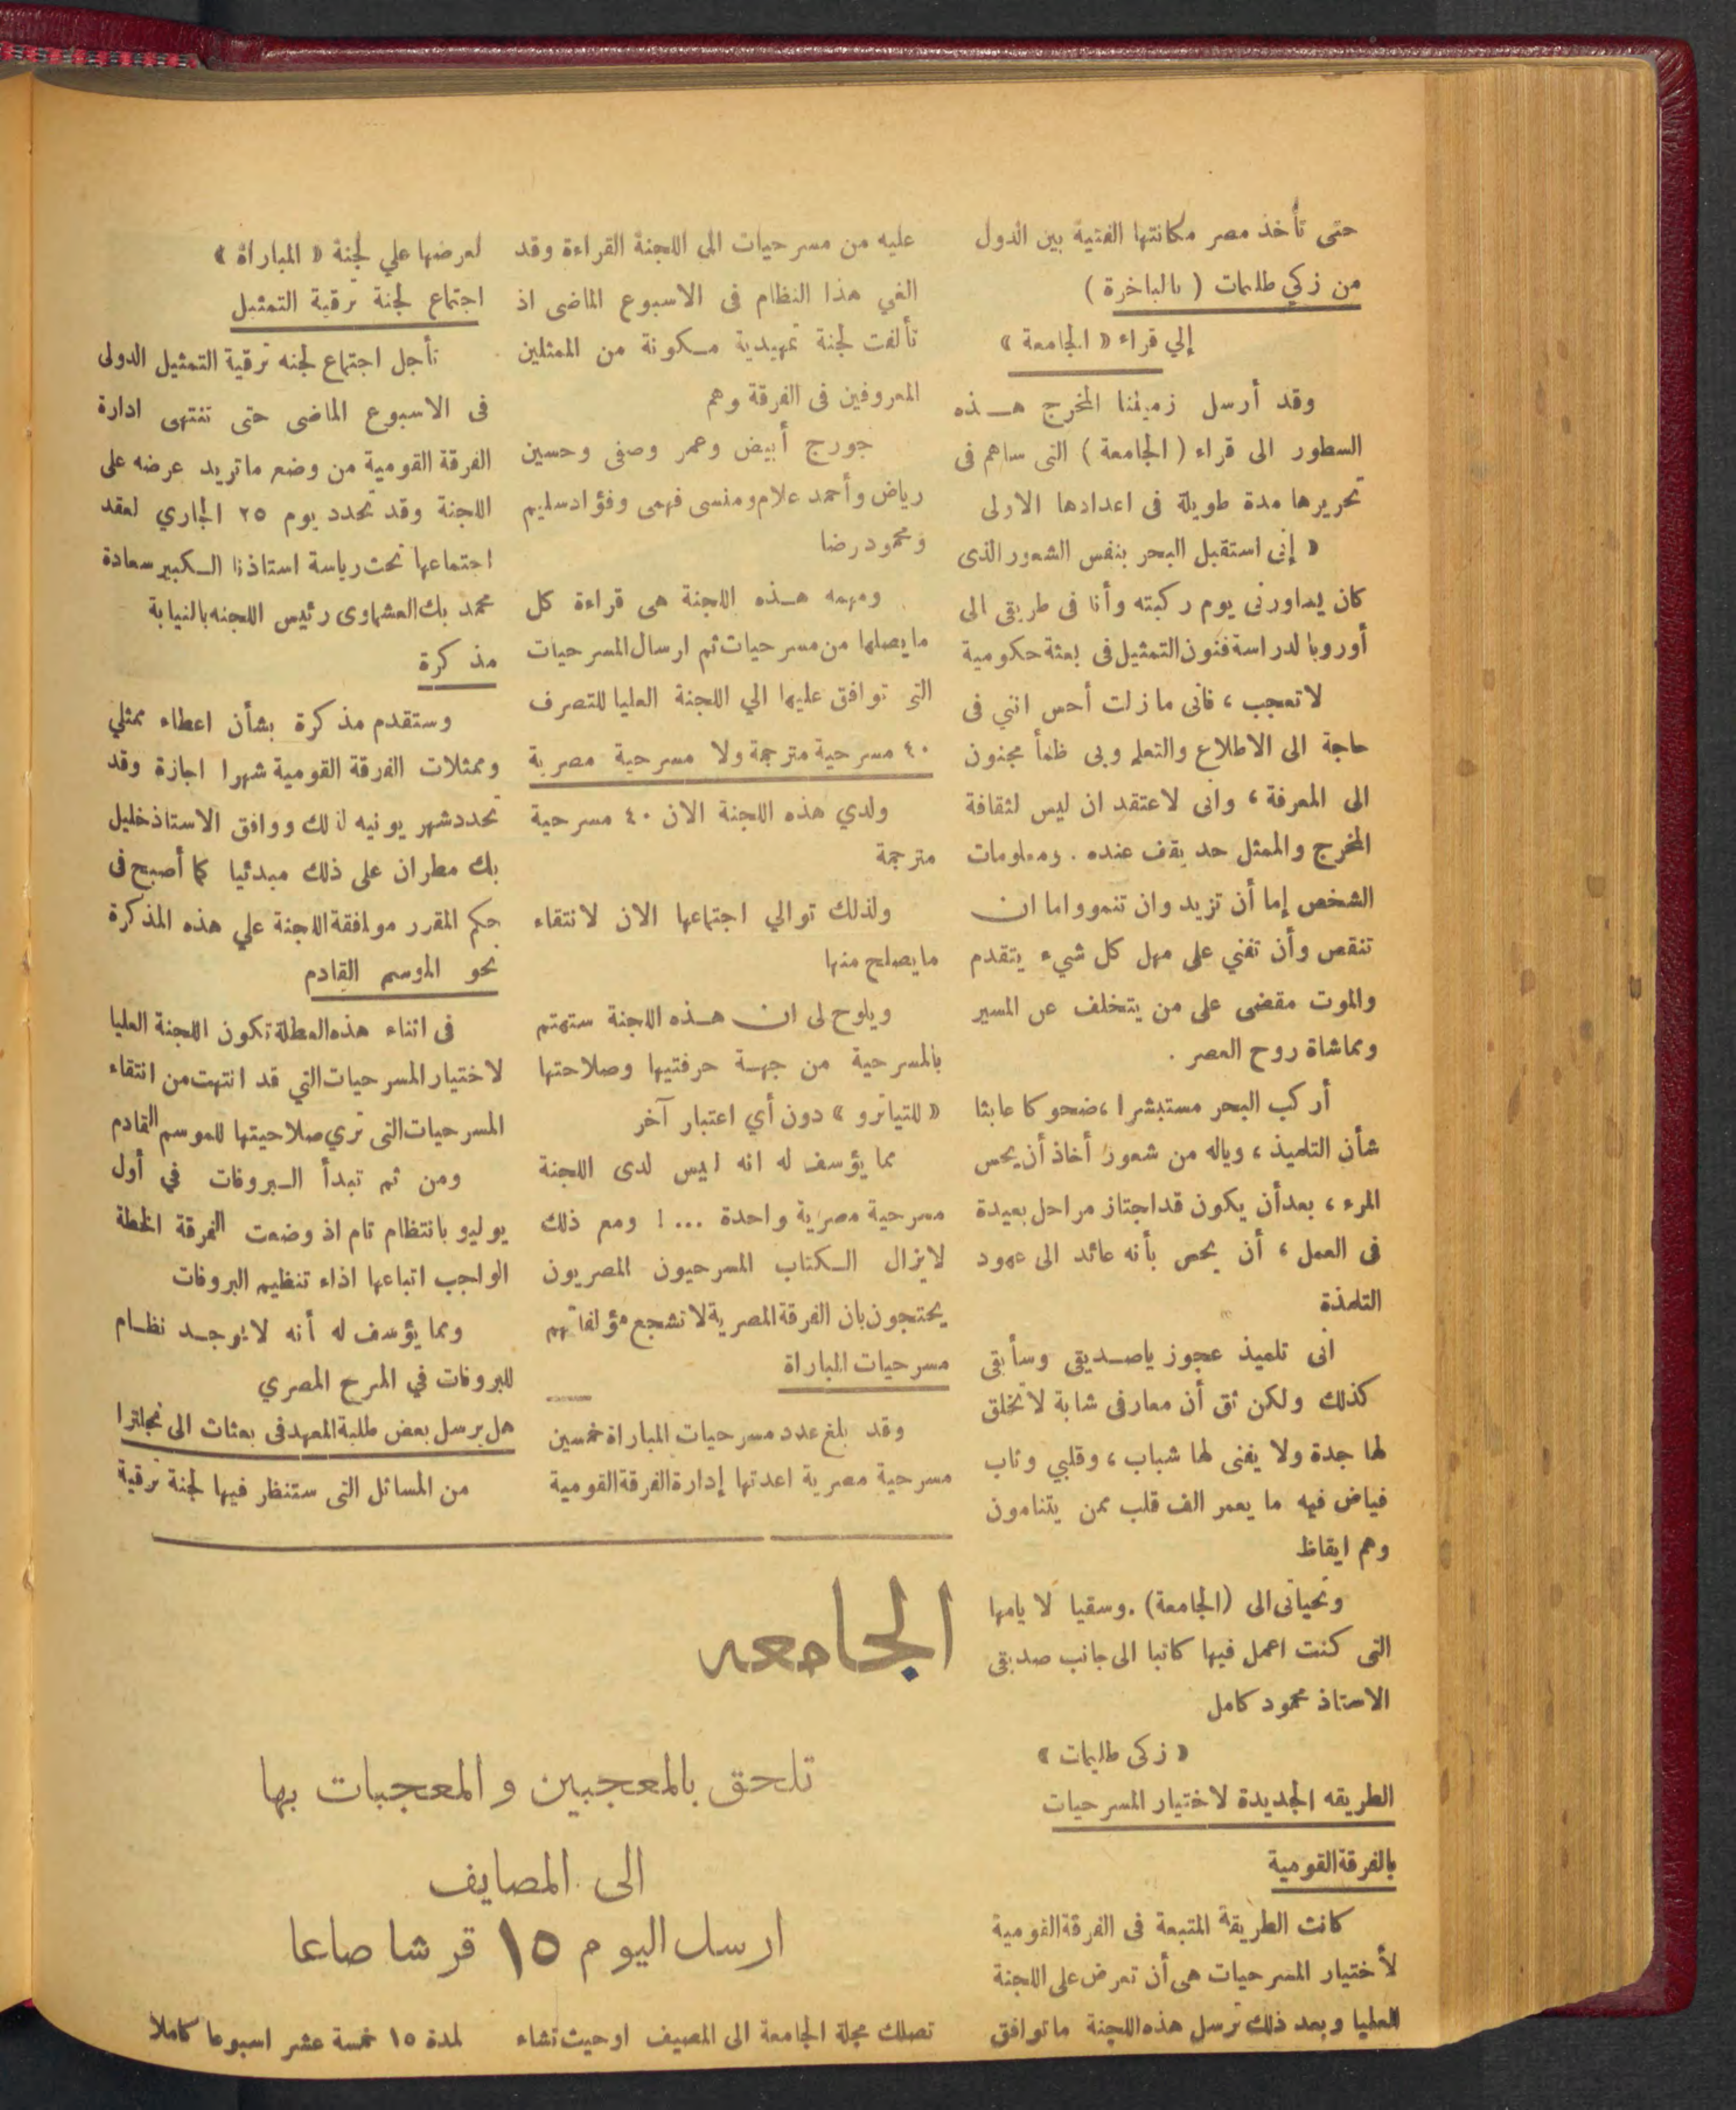 حتى تأخذ مصر مكانتها الفنية بين الدول
من زكي طليمات ( بالباخرة )
إلي قراء « الجامعة »
وقد أرسل زميلنا المخرج هـذه
السطور الى قراء ( الجامعة ) التى ساهم فى
تحريرها مدة طويلة فى اعدادها الاولى
« إنى استقبل البحر بنفس الشعور الذى
كان يساورنى يوم ركبته وأنا فى طريقى الى
أوروبا لدراسة فنون التمثيل فى بعثة حكومية
لا تعجب ، فانى ما زلت أحس اننى فى
حاجة الى الاطلاع والتعلم وبى ظمأ مجنون
الى المعرفة ، وانى لاعتقد ان ليس لثقافة
المخرج والممثل حد يقف عنده . ومعلومات
الشخص إما أن تزيد وان تنمو واما ان
تنقص وأن تفني على مهل كل شيء يتقدم
والموت مقضى على من يتخلف عن المسير
ومماشاة روح العصر .
أركب البحر مستبشرا ، ضحوكا عابثا
شأن التلميذ ، وياله من شعور أخاذ أن يحس
المرء ، بعد أن يكون قد اجتاز مراحل بعيدة
فى العمل ، أن يحس بأنه عائد الى عهود
التلمذة
انى تلميذ عجوز ياصـديقى وسأبقى
كذلك ولكن ثق أن معارفى شابة لا تخلق
لها جدة ولا يفنى لها شباب ، وقلبي وثاب
فياض فيه ما يعمر الف قلب ممن يتنامون
وهم ايقاظ
وتحياتى الى (الجامعة) . وسقيا لايامها
التى كنت اعمل فيها كاتبا الى جانب صديقى
الاستاذ محمود كامل
« زكى طليمات »
الطريقه الجديدة لاختيار المسرحيات
بالفرقة القومية
كانت الطريقة المتبعة فى الفرقة القومية
لأختيار المسرحيات هى أن تعرض على اللجنة
العليا وبعد ذلك ترسل هذه اللجنة ما توافق
عليه من مسرحيات الى اللجنة القراءة وقد
الغي هذا النظام فى الاسبوع الماضى اذ
تألفت لجنة تمهيدية مـكونة من الممثلين
المعروفين فى الفرقة وهم
جورج أبيض وعمر وصفى وحسين
رياض وأحمد علام ومنسى فهمى وفؤاد سليم
ومحمود رضا
ومهمه هـذه اللجنة هى قراءة كل
ما يصلها من مسرحيات ثم ارسال المسرحيات
التى توافق عليها الي اللجنة العليا للتصرف
٤٠ مسرحية مترجمة ولا مسرحية مصرية
ولدي هذه اللجنة الان ٤٠ مسرحية
مترجمة
ولذلك توالي اجتماعها الان لانتقاء
ما يصلح منها
ويلوح لى ان هـذه اللجنة ستهتم
بالمسرحية من جهـة حرفتيها وصلاحتها
« للتياترو » دون أي اعتبار آخر
مما يؤسف له انه ليس لدى اللجنة
مسرحية مصرية واحدة ... ! ومع ذلك
لايزال الـكتاب المسرحيون المصريون
يحتجون بان الفرقة المصرية لا تشجع مؤلفاتهم
مسرحيات المباراة
وقد بلغ عدد مسرحيات المباراة خمسين
مسرحية مصرية اعدتها إدارة الفرقة القومية
لعرضها علي لجنة « المباراة »
اجتماع لجنة ترقية التمثيل
تأجل اجتماع لجنه ترقية التمثيل الدولى
فى الاسبوع الماضى حتى تنتهى ادارة
الفرقة القومية من وضع ما تريد عرضه على
اللجنة وقد تحدد يوم ٢٥ الجاري لعقد
اجتماعها تحت رياسة استاذنا الـكبير سعادة
محمد بك العشماوى رئيس اللجنه بالنيابة
مذكرة
وستقدم مذكرة بشأن اعطاء ممثلي
وممثلات الفرقة القومية شهرا اجازة وقد
تحدد شهر يونيه لذلك ووافق الاستاذ خليل
بك مطران على ذلك مبدئيا كما أصبح فى
حكم المقرر موافقة اللجنة علي هذه المذكرة
نحو الموسم القادم
فى اثناء هذه العطلة تكون اللجنة العليا
لاختيار المسرحيات التي قد انتهت من انتقاء
المسرحيات التى تري صلاحيتها للموسم القادم
ومن ثم تبدأ الـبروفات في أول
يوليو بانتظام تام اذ وضعت الفرقة الخطة
الواجب اتباعها اذاء تنظيم البروفات
ومما يؤسف له أنه لايوجـد نظـام
للبروفات في المسرح المصري
هل يرسل بعض طلبة المعهد فى بعثات الى نجلترا
من المسائل التى ستنظر فيها لجنة ترقية
الجامعه
تلحق بالمعجبين والمعجبات بها
الى المصايف
ارسل اليوم ١٥ قرشا صاعا
تصلك مجلة الجامعة الى المصيف او حيث تشاء لمدة ١٥ خمسة عشر اسبوعا كاملا